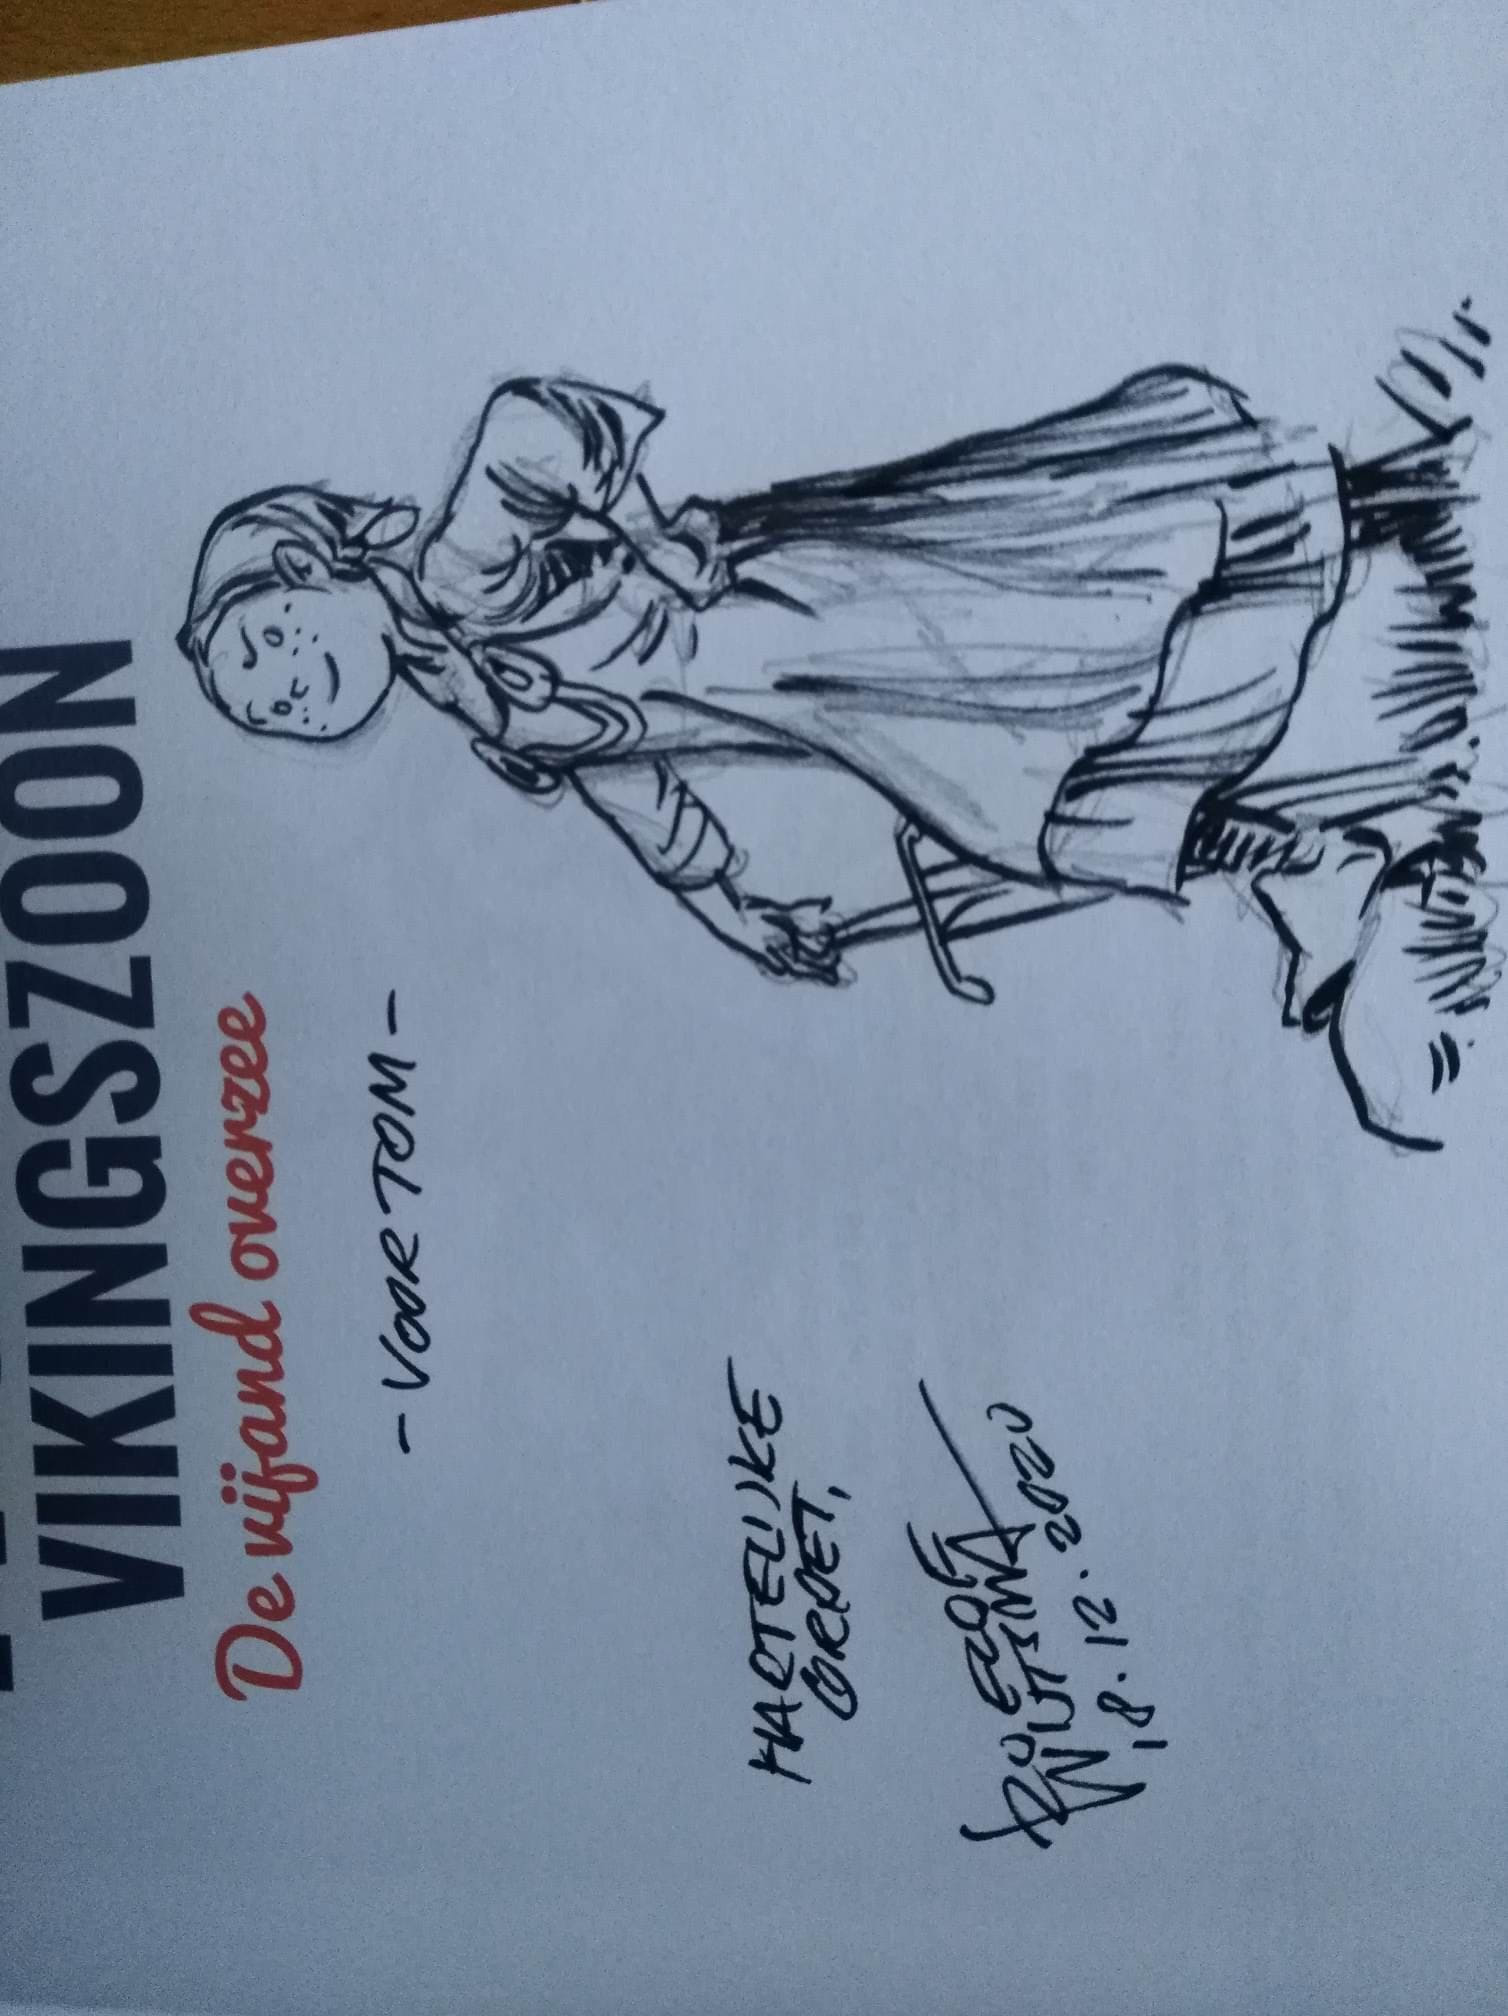 VIKINGSZOON
De vijand overzee
- VOOR TOM -
HARTELIJKE
GROET,
ROELOF
WIJTSMA
18.12.2020